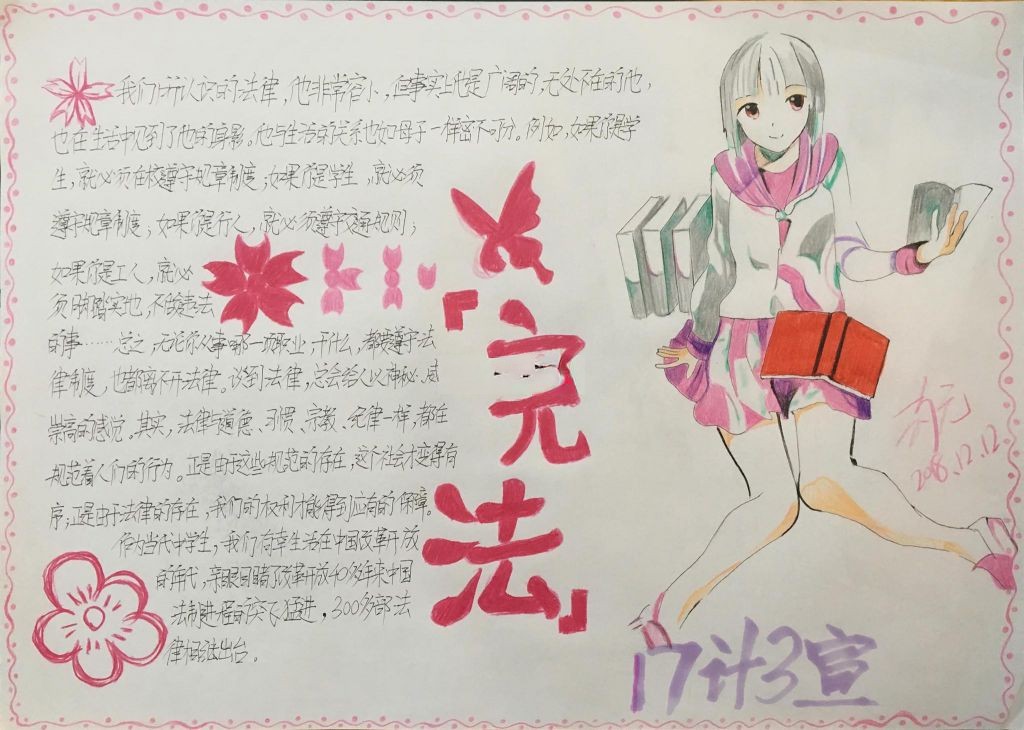 我们所认识的法律，他非常窄小，但事实上他是广阔的，无处不在的他，
也在生活中见到了他的身影。他与生活的关系也如母子一样密不可分。例如，如果你是学
生，就必须在校遵守规章制度；如果你是学生，就必须
遵守规章制度；如果你是行人，就必须遵守交通规则；
如果你是工人，就必
须脚踏实地，不做违法
的事……总之，无论你从事哪一项职业，干什么，都要遵守法
律制度，也都离不开法律。谈到法律，总会给人以神秘、威
崇高的感觉。其实，法律与道德、习惯、宗教、纪律一样，都在
规范着人们的行为。正是由于这些规范的存在，这个社会才变得有
序；正是由于法律的存在，我们的权利才能得到应有的保障。
作为当代中学生，我们有幸生活在中国改革开放
的年代，亲眼目睹了改革开放40多年来中国
法制进程的突飞猛进，300多部法
律相继出台。
「宪法」
2018.12.12
17计3宣